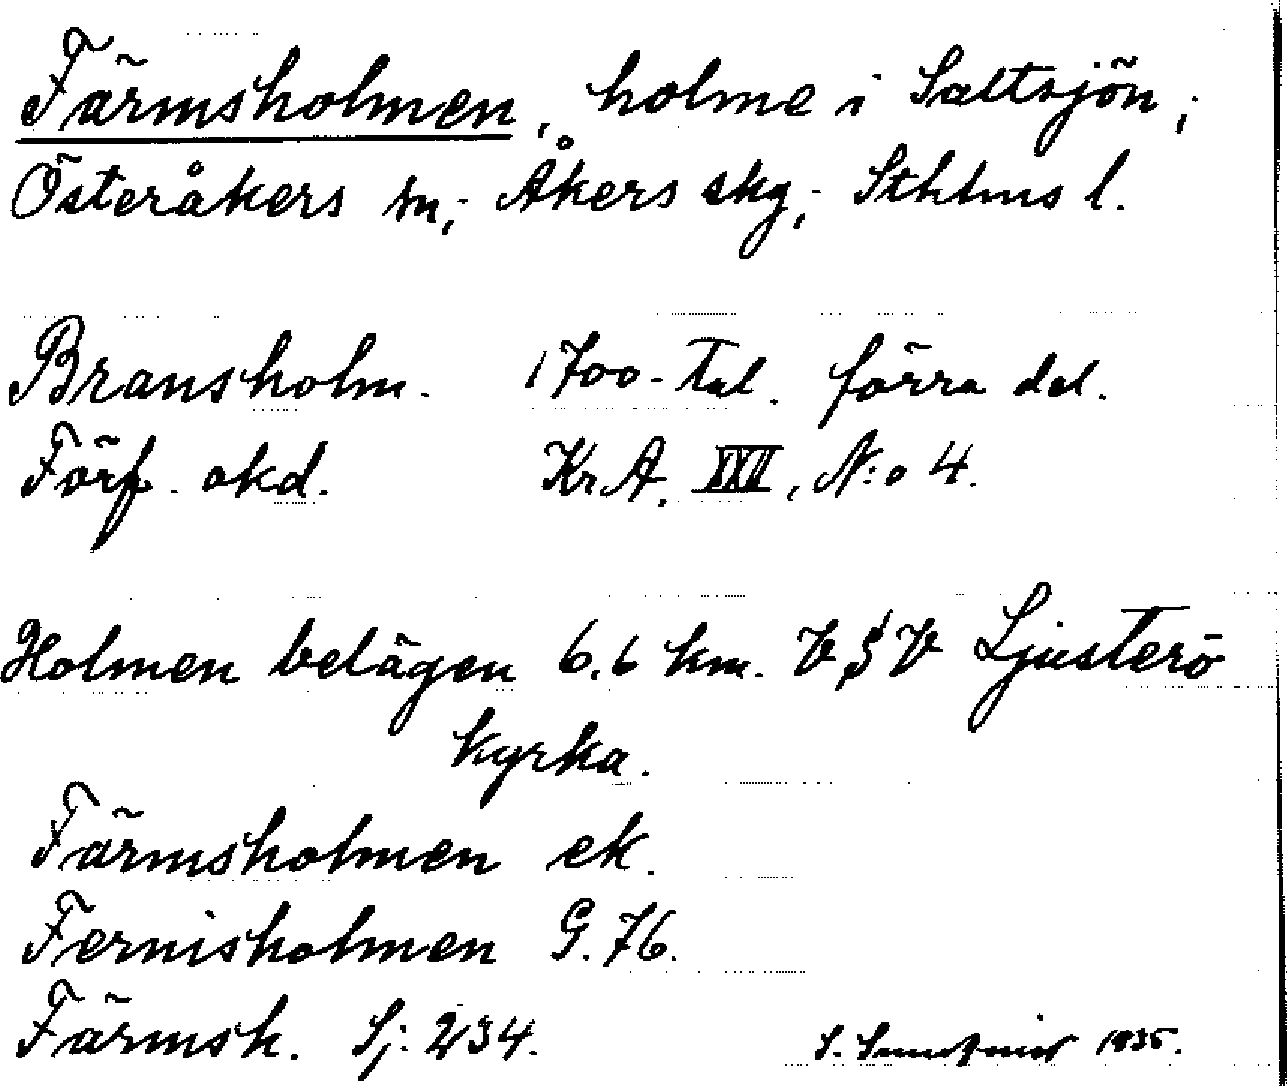 Färmsholmen, holme i Saltsjön,
Österåkers sn, Åkers skg, Sthlms l.
Bransholm. 1700-tal. förra del.
Förf. okd. Kr.A. XXII, N:o 4.
Holmen belägen 6.6 km. V S V Ljusterö
kyrka.
Färmsholmen ek.
Fernisholmen G. 76.
Färmsh. Sj: 234.
S. 1935.